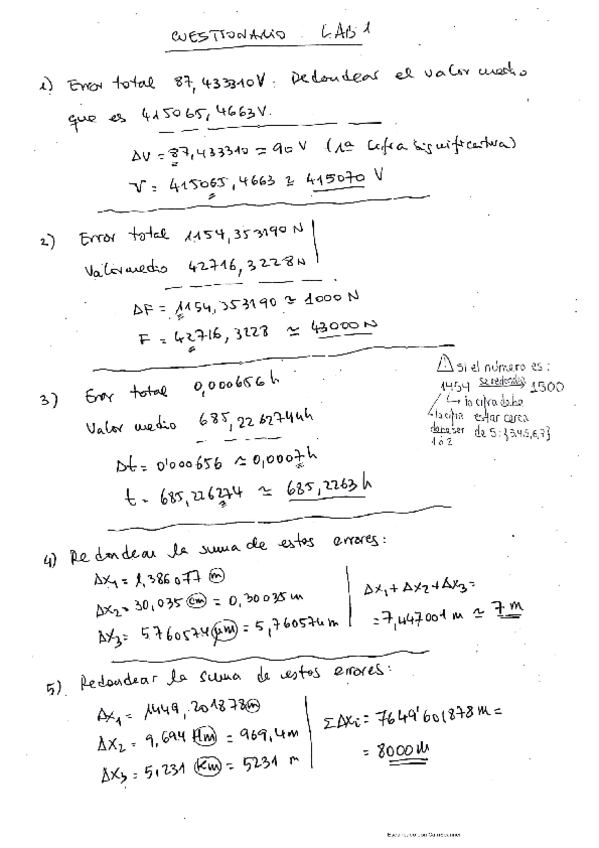 CUESTIONARIO LAB 1
1) Error total 87,433310V. Redondear el valor medio
que es 415065,4663V.
ΔV = 87,433310 ≃ 90 V (1ª cifra significativa)
V = 415065,4663 ≃ 415070 V
2) Error total 1154,353190 N
Valor medio 42716,3228 N
ΔF = 1154,353190 ≃ 1000 N
F = 42716,3228 ≃ 43000 N
⚠ si el número es:
1454 se redondea 1500
↳ la cifra debe
la cifra estar cerca
debe ser de 5: {3,4,5,6,7}
1 ó 2
3) Error total 0,000656 h
Valor medio 685,226274 h
Δt = 0'000656 ≃ 0,0007 h
t = 685,226274 ≃ 685,2263 h
4) Redondear la suma de estos errores:
Δx₁ = 1,386077 m
Δx₂ = 30,035 cm = 0,30035 m
Δx₃ = 5760574 μm = 5,760574 m
Δx₁ + Δx₂ + Δx₃ =
= 7,447001 m ≃ 7 m
5) Redondear la suma de estos errores:
Δx₁ = 1449,201878 m
Δx₂ = 9,694 Hm = 969,4 m
Δx₃ = 5,231 Km = 5231 m
ΣΔxᵢ = 7649'601878 m =
= 8000 m
Escaneado con CamScanner